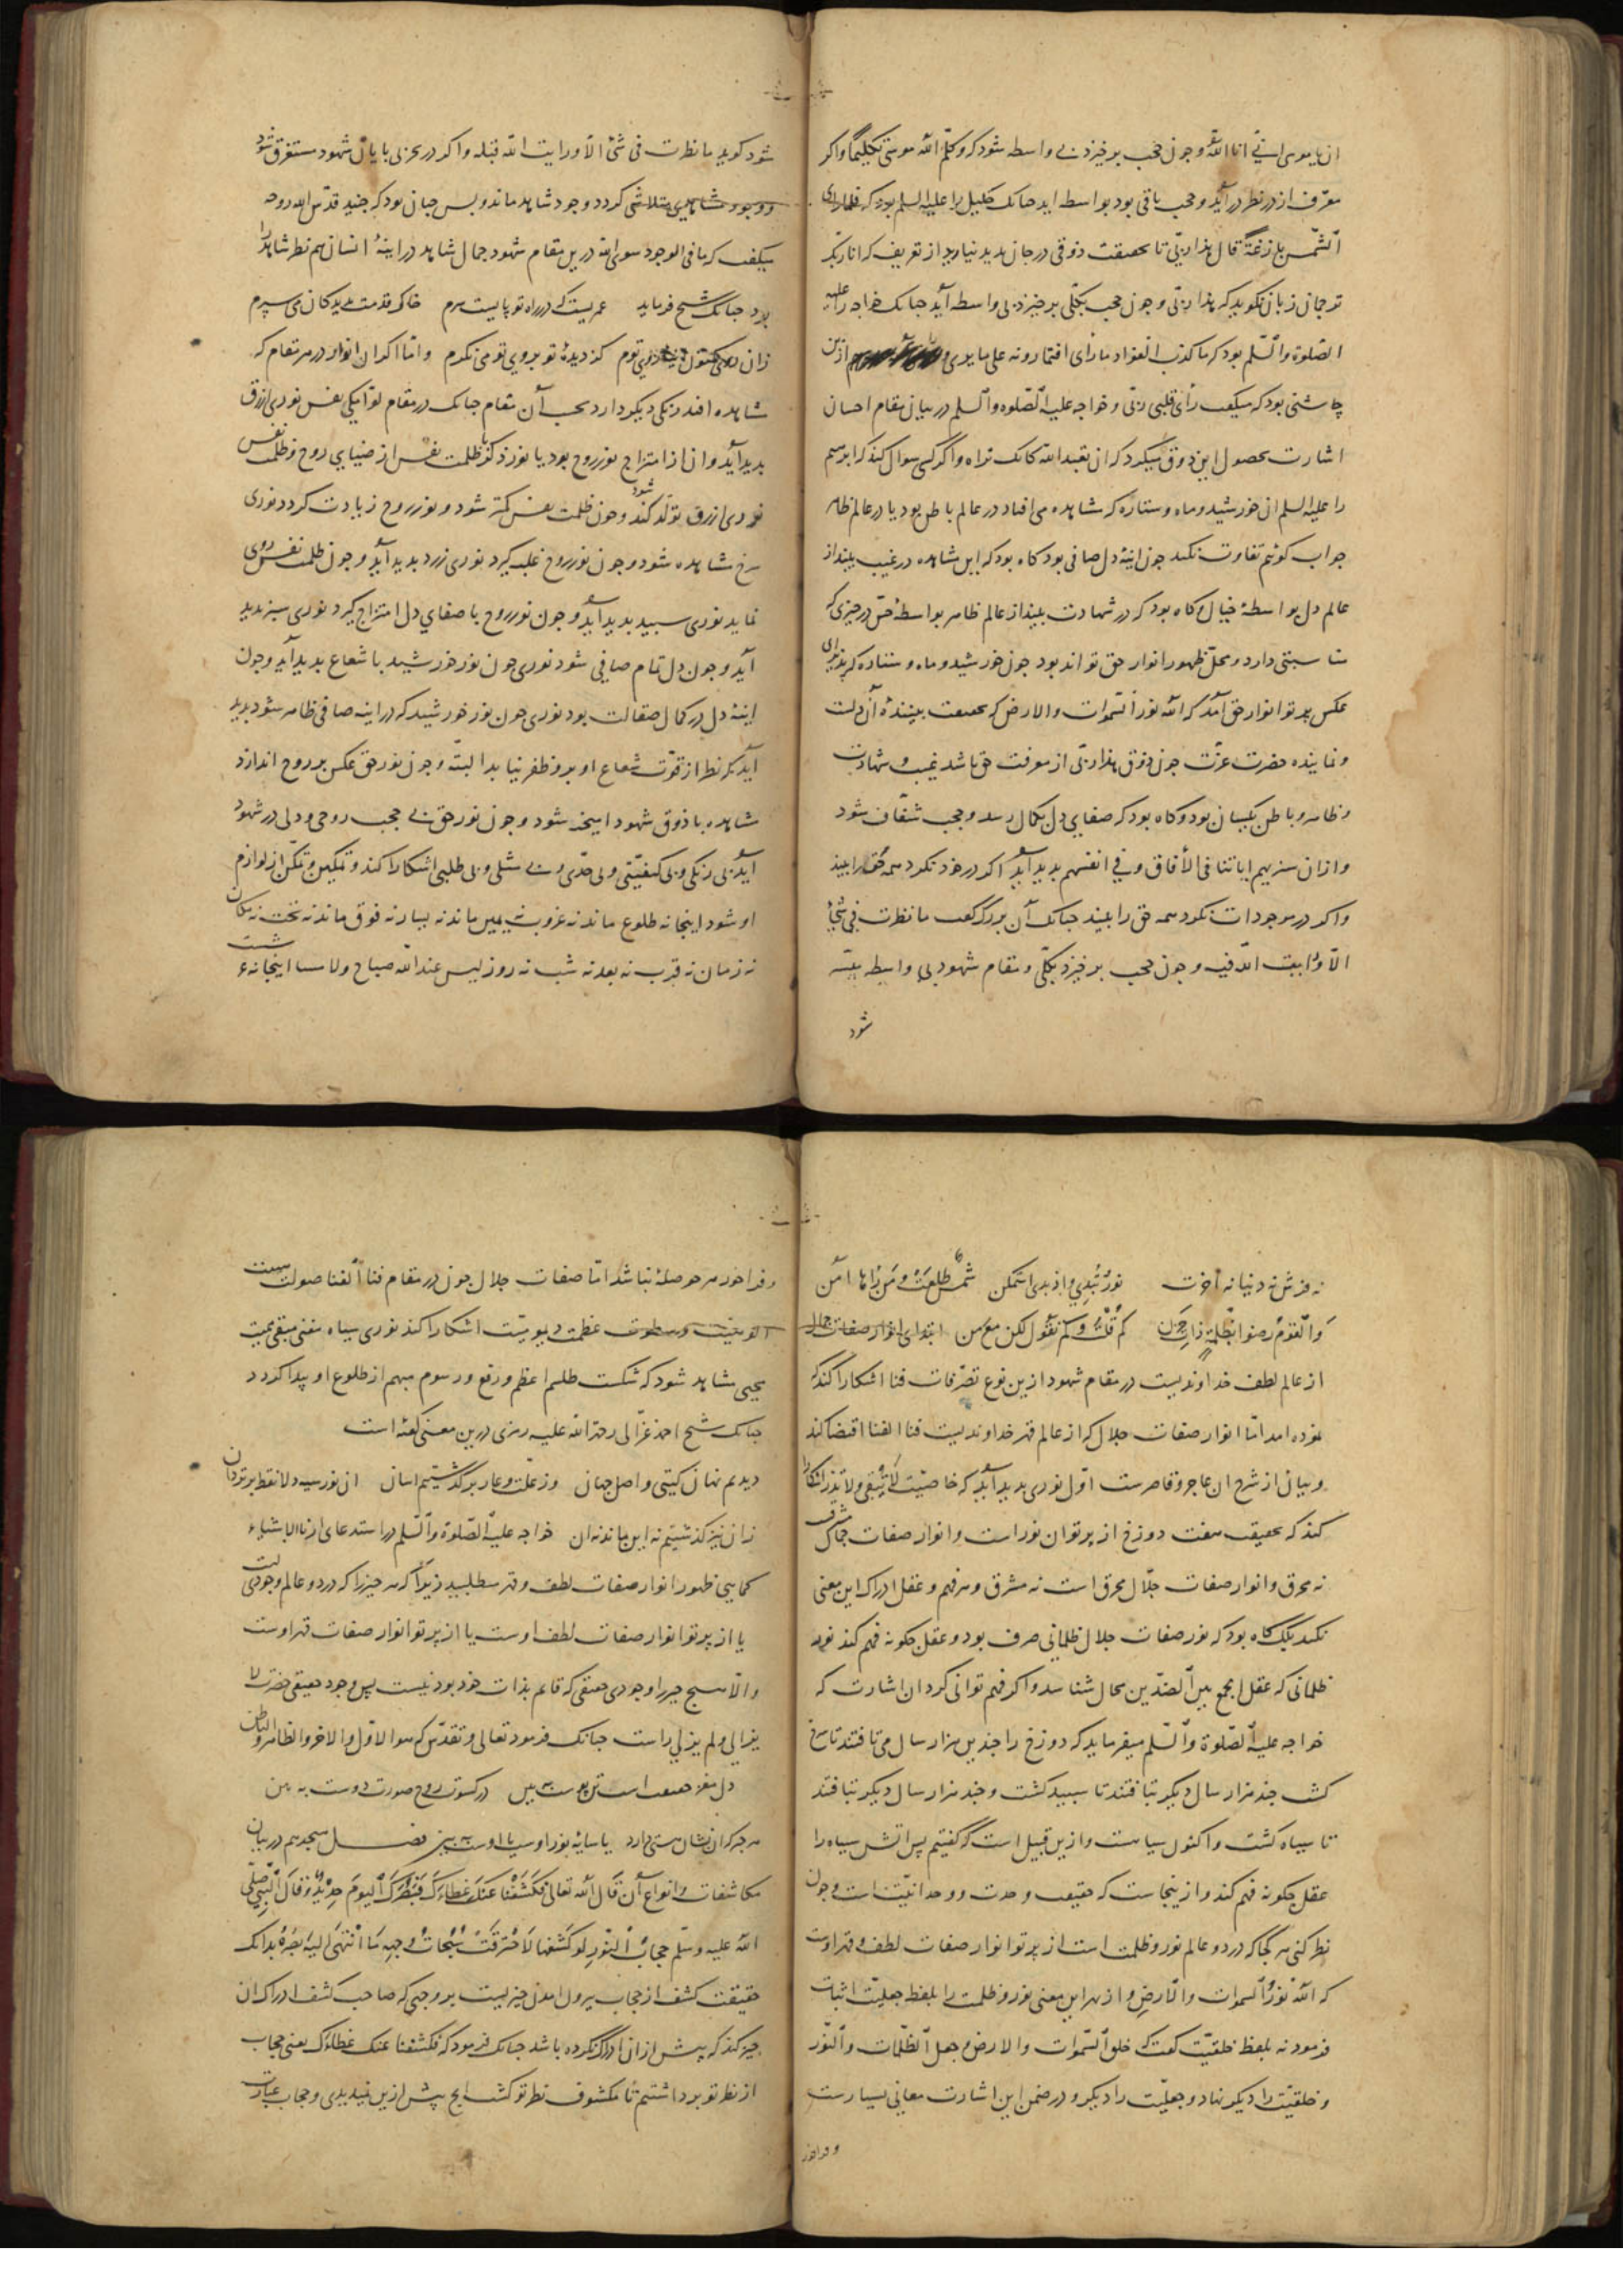 ان یا موسی انی انا الله و چون حجب برخیزد بی واسطه شود که و کلّم الله موسی تکلیما و اکر
معرّف از در نظر در آید و حجب باقی بود بواسطه اید چنانک خلیل را علیه السلم بود که فلما رای
الشّمس بازغةً قال هذا ربّی تا حقیقت ذوقی در جان بدید نیاورد از تعریف که انا ربّک
ترجمان زبان نکوید که هذا ربّی و چون حجب بکلّی برخیزد بی واسطه آید چنانک خواجه را علیه
الصّلوة والسّلم بود که ما کذب الفؤاد ما رای افتمارونه علی ما یری و از این
چاشنی بود که میکفت رأی قلبی ربّی و خواجه علیه الصّلوه والسلم در بیان مقام احسان
اشارت بحصول این ذوق میکرد که ان تعبد الله کانک تراه و اکر کسی سوال کند که ابرهیم
را علیه السلم ان خورشید و ماه و ستاره که مشاهده می افتاد در عالم باطن بود یا در عالم ظاهر
جواب کوئیم تفاوت نکند چون اینهٔ دل صافی بود کاه بود که این مشاهده در غیب بیند از
عالم دل بواسطهٔ خیال و کاه بود که در شهادت بیند از عالم ظاهر بواسطهٔ حسّ در چیزی که
مناسبتی دارد و محلّ ظهور انوار حق تواند بود چون خورشید و ماه و ستاره که پذیرای
عکس پرتو انوار حق آمد که الله نور السّموات والارض که بحقیقت بینندهٔ آن دلست
و نماینده حضرت عزّت چون ذوق هذا ربّی از معرفت حق باشد غیب و شهادت
و ظاهر و باطن یکسان بود و کاه بود که صفای دل بکمال رسد و حجب شفّاف شود
و از ان سنریهم ایاتنا فی الأفاق و فی انفسهم بدید آید اکر در خود نکرد همه حق را بیند
و اکر در موجودات نکرد همه حق را بیند چنانک آن بزرک کفت ما نظرت فی شیٔ
الّا ورایت الله فیه و چون حجب برخیزد بکلّی و مقام شهود بی واسطه میسّر
شود
شود کوید ما نظرت فی شیٔ الّا ورایت الله قبله و اکر در بحر بی پایان شهود مستغرق شود
و وجود مشاهدی متلاشی کردد وجود شاهد ماند و بس چنان بود که جنید قدّس الله روحه
میکفت که ما فی الوجود سوی الله درین مقام شهود جمال شاهد در اینهٔ انسان هم نظر شاهد را
بود چنانک شیخ فرماید عمریست که در راه تو پایست سرم خاک قدمت بدیدکان می سپرم
زان روی کنون آینهٔ روی توم کز دیدهٔ تو بروی تو می نکرم و امّا اکر ان انوار در هر مقام که
مشاهده افتد رنکی دیکر دارد بحسب آن مقام چنانک در مقام لوّامکی نفس نوری ازرق
بدید آید و ان از امتزاج نور روح بود یا نور ذکر با ظلمت نفس از ضیای روح و ظلمت نفس
نوری ازرق تولّد کند و چون ظلمت نفس کمتر شود و نور روح زیادت کردد نوری
سرخ مشاهده شود و چون نور روح غلبه کیرد نوری زرد بدید آید و چون ظلمت نفس روی
نماید نوری سپید بدید آید و چون نور روح با صفای دل امتزاج کیرد نوری سبز بدید
آید و چون دل تمام صافی شود نوری چون نور خورشید با شعاع بدید آید و چون
اینهٔ دل در کمال صقالت بود نوری چون نور خورشید که در اینه صافی ظاهر شود بدید
آید که نظر از قوّت شعاع او برو ظفر نیابد البتّه و چون نور حق عکس بر روح اندازد
مشاهده با ذوق شهود امیخته شود و چون نور حق بی حجب روحی و دلی در شهود
آید بی رنکی و بی کیفیّتی و بی حدّی و بی مثلی و بی طلبی اشکارا کند و تمکین و تمکّن از لوازم
او شود اینجا نه طلوع ماند نه غروب نه یمین ماند نه یسار نه فوق ماند نه تحت نه مکان
نه زمان نه قرب نه بعد نه شب نه روز لیس عند الله صباح ولا مسا اینجا نه عرشست
نه فرش نه دنیا نه آخرت نورٌ یُبدی و اذ بدی استمکن شمسٌ طلعت ومن رآها امن
والقومُ رضوا بظلّه ذات حزن کم قلت وکم نقول لکن مع من ابتدای انوار صفات جمال
از عالم لطف خداوندیست در مقام شهود ازین نوع تصرّفات فنا اشکارا کند که
نموده امد امّا انوار صفات جلال که از عالم قهر خداوندیست فنا الفنا اقتضا کند
و بیان از شرح ان عاجز و قاصرست اوّل نوری بدید آید که خاصیّت لا تُبقی ولا تذر اشکارا
کند که بحقیقت هفت دوزخ از پرتو ان نور است و انوار صفات جمال مشرق
نه محرق و انوار صفات جلال محرق است نه مشرق و هر فهم و عقل ادراک این معنی
نکند بلک کاه بود که نور صفات جلال ظلمانی صرف بود و عقل چکونه فهم کند نور
ظلمانی که عقل الجمع بین الضدّین محال شناسد و اکر فهم توانی کرد ان اشارت که
خواجه علیه الصّلوة والسّلم میفرماید که دوزخ را چندین هزار سال می تافتند تا سرخ
کشت چند هزار سال دیکر بتافتند تا سپید کشت و چند هزار سال دیکر بتافتند
تا سیاه کشت و اکنون سیاهست و ازین قبیل است که کفتیم پس اتش سیاه را
عقل چکونه فهم کند و ازینجاست که حقیقت وحدت و وحدانیّت است و چون
نظر کنی هر کجا که در دو عالم نور و ظلمت است از پرتو انوار صفات لطف و قهر اوست
که الله نورُ السموات والارض و از بهر این معنی نور و ظلمت را بلفظ جعلیّت اثبات
فرمود نه بلفظ خلقیّت کفت که خلق السّموات والارض وجعل الظّلمات والنّور
و خلقیّت را دیکر نهاد و جعلیّت را دیکر و در ضمن این اشارت معانی بسیارست
و فراخور
و فراخور هر حوصلهٔ نباشد امّا صفات جلال چون در مقام فنا الفنا صولت هیبت
الوهیت و سطوت عظمت دیمومیت اشکارا کند نوری سیاه مفنی مبقی ممیت
محیی مشاهد شود که شکست طلسم اعظم و رفع ورسوم مبهم از طلوع او پیدا کردد
چنانک شیخ احمد غزّالی رحمة الله علیه رمزی درین معنی کفته است
دیدیم نهان کیتی و اصل جهان وز علّت و عار برکذشتیم اسان ان نور سیه ز لا نقط برتر دان
زان نیز کذشتیم نه این ماند نه ان خواجه علیه الصّلوة والسّلم در استدعای ارنا الاشیاء
کما هی ظهور انوار صفات لطف و قهر میطلبید زیرا که هر چیز را که در دو عالم وجودیست
یا از پرتو انوار صفات لطف اوست یا از پرتو انوار صفات قهر اوست
و الّا هیچ چیز را وجودی حقیقی که قایم بذات خود بود نیست پس وجود حقیقی حضرت لا
یزالی ولم یزلی راست چنانک فرمود تعالی و تقدّس که هو الاوّل والاخر والظاهر والباطن
دل مغز حقیقت است تن پوست ببین در کسوت روح صورت دوست ببین
هر چیز که ان نشان هستی دارد یا سایهٔ نور اوست یا اوست ببین فصل هیجدهم در بیان
مکاشفات و انواع آن قال الله تعالی فکشفنا عنک غطاءک فبصرک الیوم حدیدٌ وقال النبی صلّی
الله علیه وسلّم حجابه النّور لو کشفها لاحترقت سبحات وجهه ما انتهی الیه بصره بدانک
حقیقت کشف از حجاب بیرون امدن چیزیست بر وجهی که صاحب کشف ادراک ان
چیز کند که پیش از ان ادراک نکرده باشد چنانک فرمود که فکشفنا عنک غطاءک یعنی حجاب
از نظر تو برداشتیم تا مکشوف نظر تو کشت انچ پیش ازین نمیدیدی و حجاب عبارت